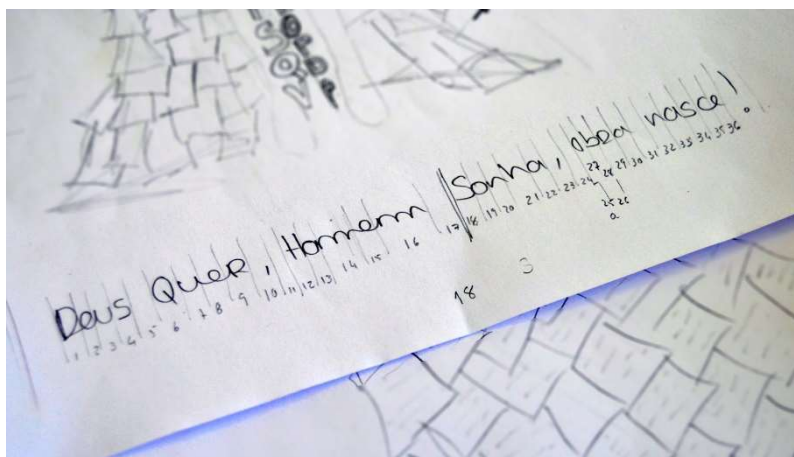 Deus Quer, Homem Sonha, obra nasce!
1 2 3 4 5 6 7 8 9 10 11 12 13 14 15 16 17 18 19 20 21 22 23 24 27 28 29 30 31 32 33 34 35 36
25 26
a
18 3